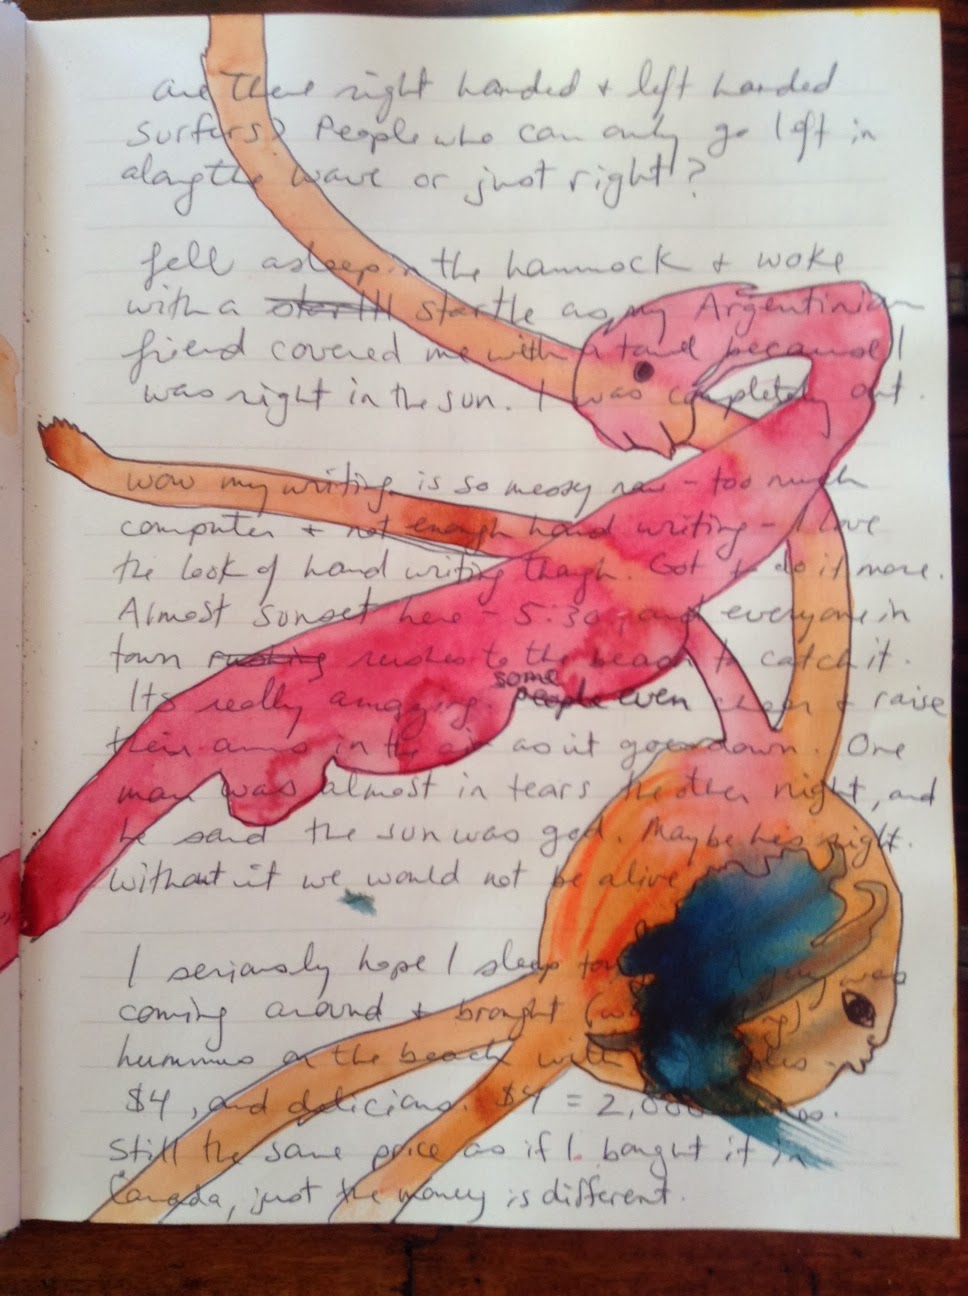 are there right handed + left handed
surfers? People who can only go left in
along the wave or just right?
fell asleep in the hammock + woke
with a startle as my Argentinian
friend covered me with a towel because I
was right in the sun. I was completely out.
wow my writing is so messy now - too much
computer + not enough hand writing - I love
the look of hand writing though. Got to do it more.
Almost sunset here - 5:30, and everyone in
town rushes to the beach to catch it.
Its really amazing. some people even cheer + raise
their arms in the air as it goes down. One
man was almost in tears the other night, and
he said the sun was god. Maybe hes right.
Without it we would not be alive
I seriously hope I sleep A guy was
coming around + brought
hummus on the beach with
$4, and delicious. $4 = 2,000
Still the same price as if I bought it in
Canada, just the money is different.